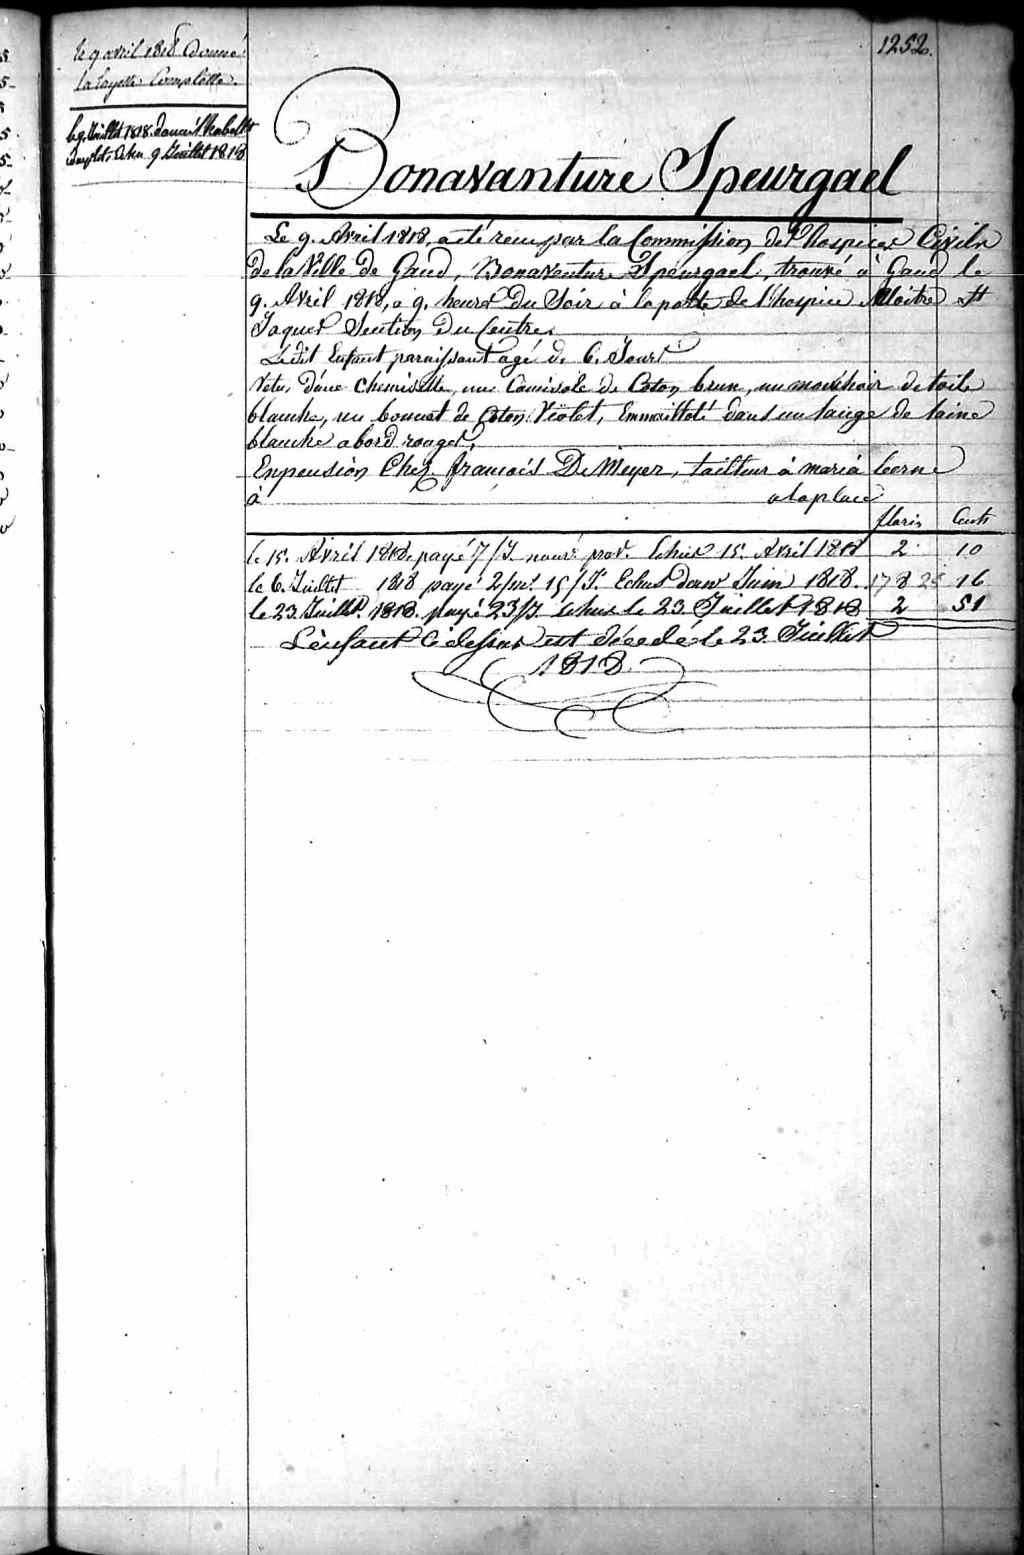 1252.
le 9 avril 1818 Donné
la layette Complette.
le 9. Juillet 1818. donné l'habillt
complet, echu 9 Juillet 1818
Bonavanture Speurgael
Le 9. Avril 1818, a été recu par la Commission des hospices Civiln
de la Ville de Gand, Bonaventure Speurgael, trouvé à Gand le
9. Avril 1818, a 9. heures Du Soir à la porte de l'hospice Maitre St
Jaques Section Du Centre.
Ledit Enfant paraissant agé de 6. Jours
Vetu, d'une chemisette, une Camisole de Coton brun, un mouchoir de toile
blanche, un bonnet de Coton Violet, Emmailloté dans un lange de laine
blanche a bord rouges,
Enpension Chez françois De Meyer, tailleur à maria leerne
à a la place
florin Cents
le 15. Avril 1818. payé 7/J. nourr prov. Echus 15. Avril 1818 2 10
le 6. Juillet 1818 payé 2/m. 15/J. Echus dans Juin 1818. 16
le 23. Juillet. 1818. payé 23/J. echus le 23. Juillet 1818 2 51
L'enfant Cidessus est décedé le 23. Juillet
1818.